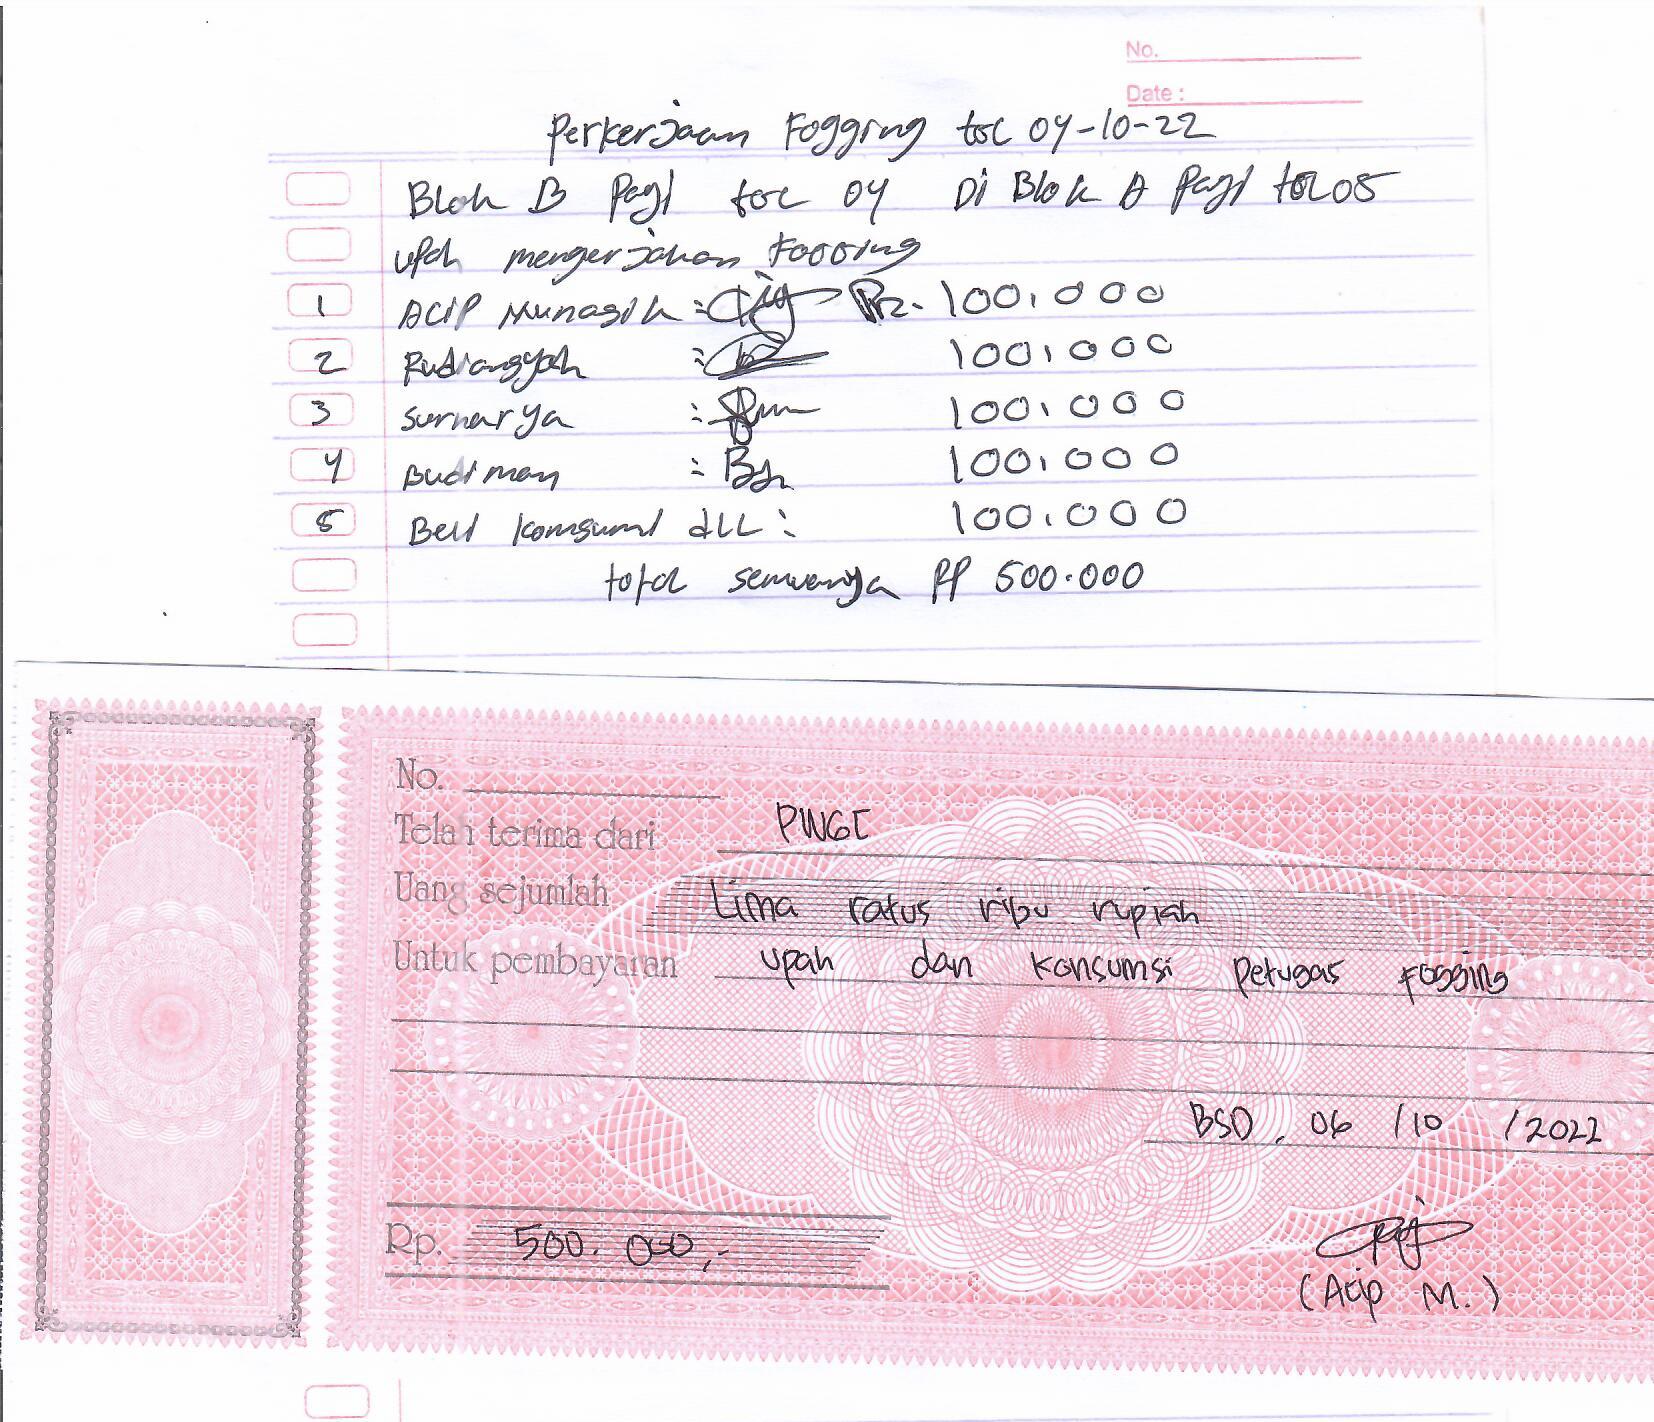 No.
Date :
Perkerjaan Fogging tgl 04-10-22
Blok B Pagi tgl 04 Di Blok A Pagi tgl 05
upah mengerjakan Fogging
1 Acip Munasik : Rp. 100.000
2 Rudiansyah : 100.000
3 Surnarya : 100.000
4 Budiman : 100.000
5 Beli komsumi dLL : 100.000
total semuanya Rp 500.000
No.
Telah terima dari PWGC
Uang sejumlah Lima ratus ribu rupiah
Untuk pembayaran upah dan konsumsi petugas Fogging
BSD, 06 /10 /2022
Rp. 500.000,-
(Acip M.)